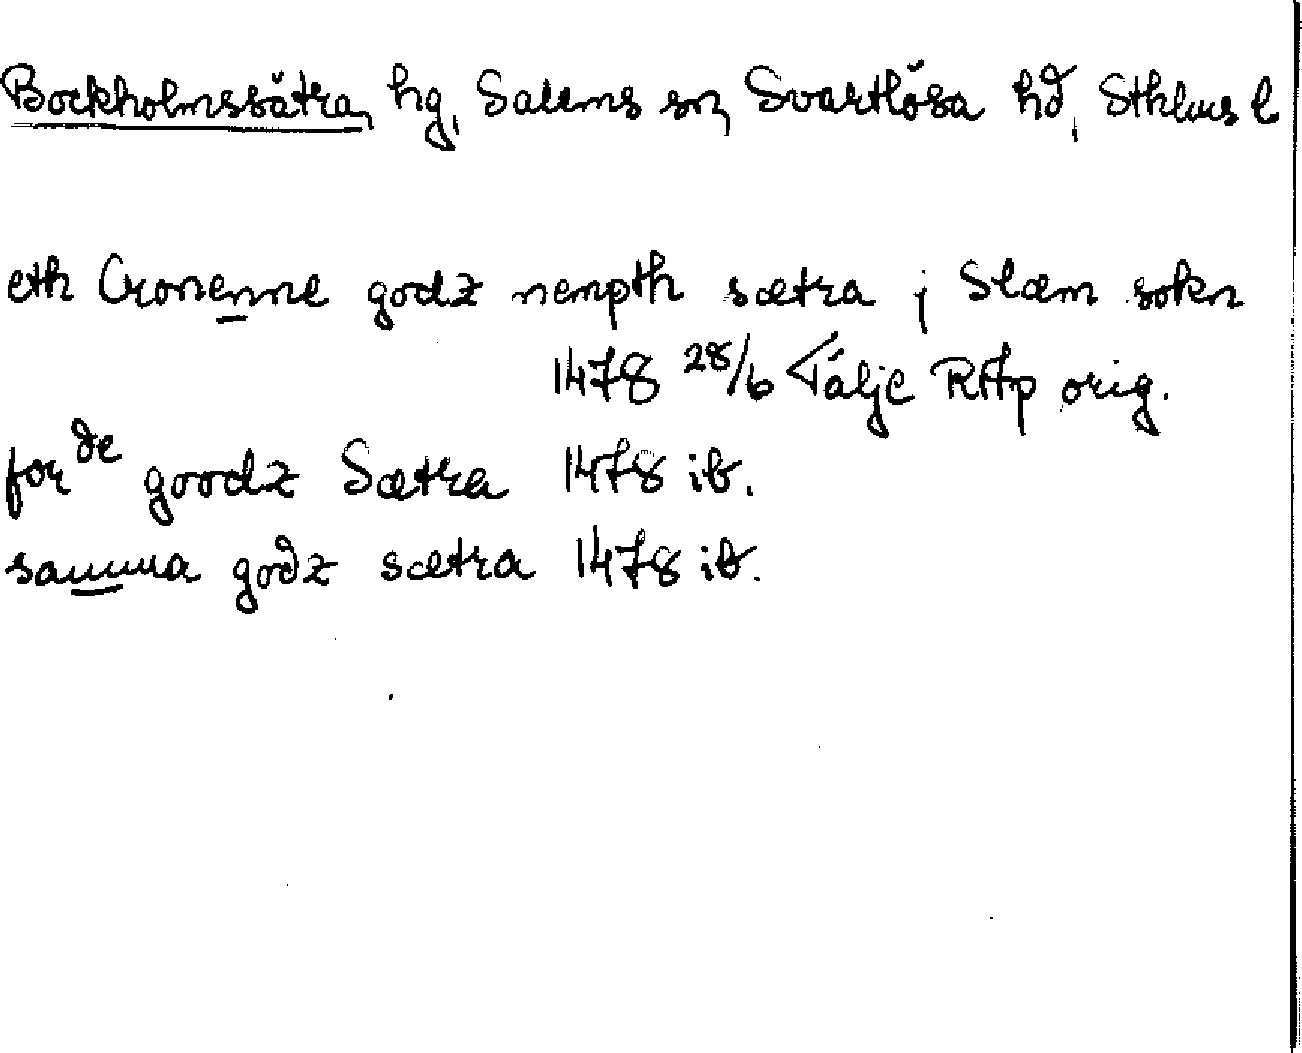 Bockholmssätra, hg, Salems sn, Svartlösa hd, Sthlms l
eth Cronenne godz nempth sætra j Slæm sokn
1478 28/6 Tälje RAp orig.
forde goodz Sætra 1478 ib.
samma godz sætra 1478 ib.